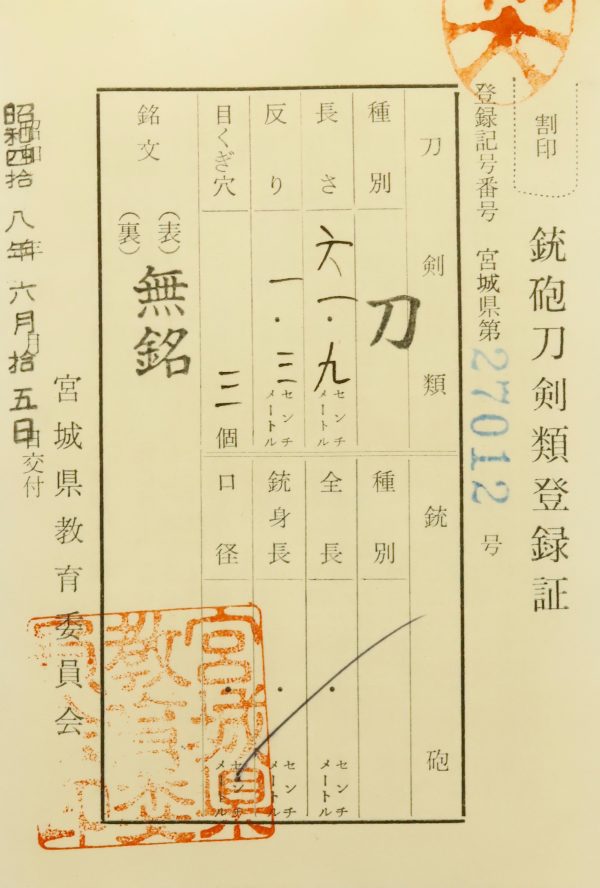 割印
銃砲刀剣類登録証
登録記号番号 宮城県第27012号
刀剣類
種別 刀
長さ 六一・九 センチメートル
反り 一・三 センチメートル
目くぎ穴 三個
銘文 (表) (裏) 無銘
銃砲
種別
全長 ・ センチメートル
銃身長 ・ センチメートル
口径 ・ センチメートル
宮城県教育委員会
昭和四拾八年六月拾五日交付
宮城県
教育委